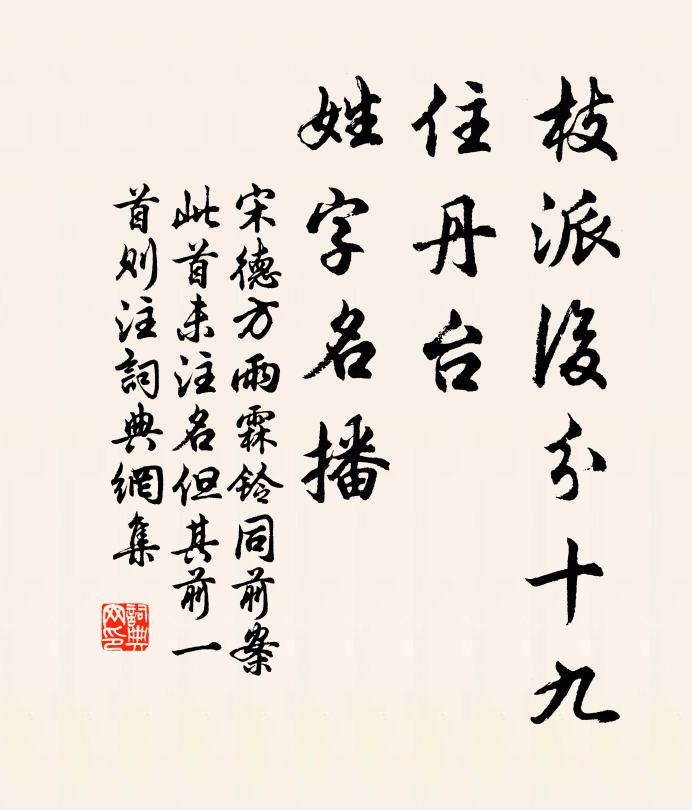 枝派後分十九
住丹台
姓字名播
宋德方雨霖鈴同前案
此首未注名但其前一
首則注詞典網集
詞典
网印